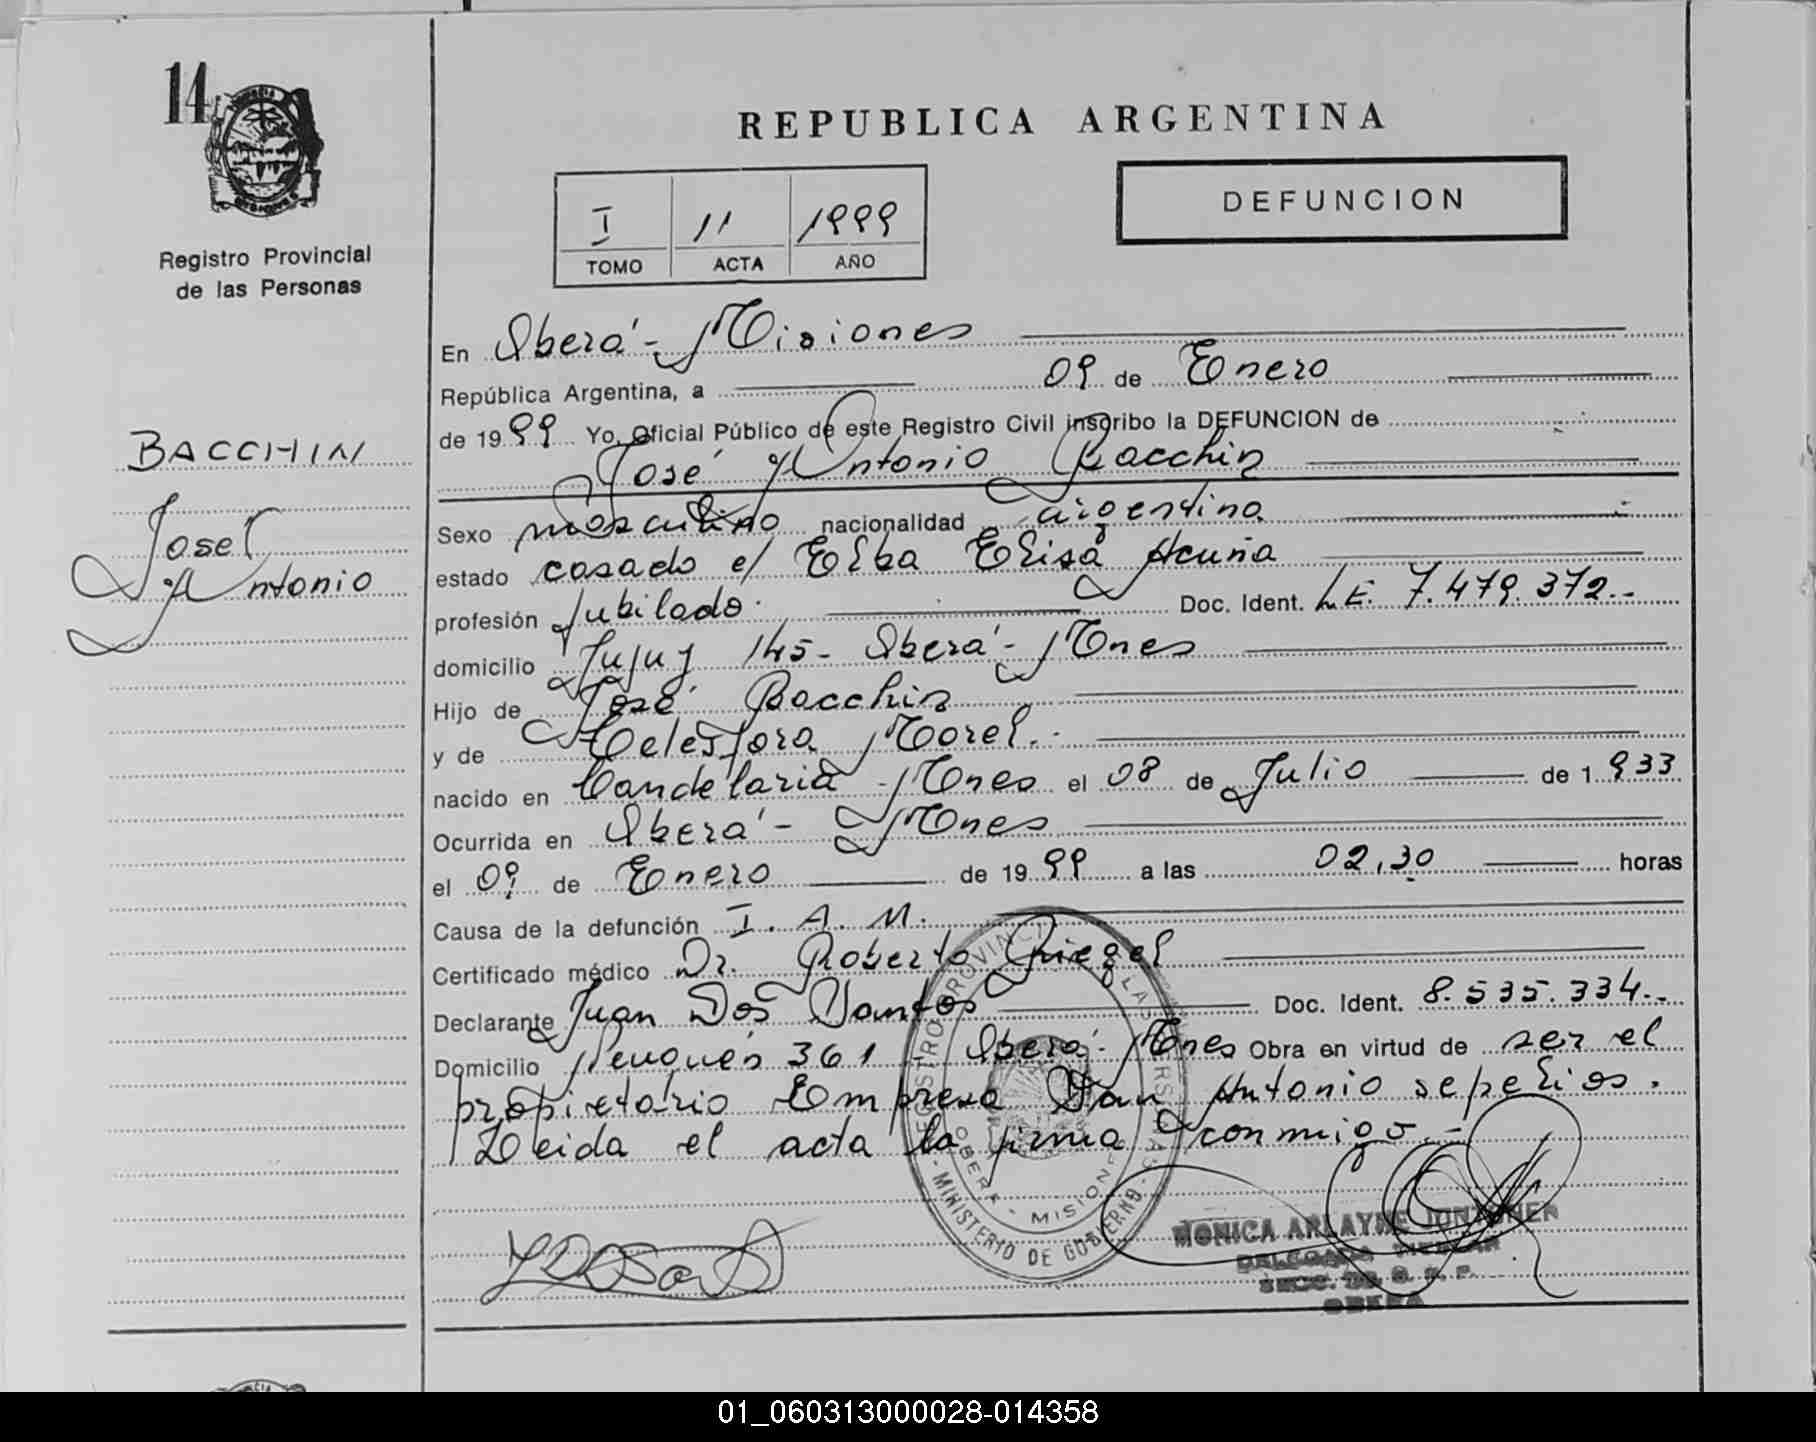 14
Registro Provincial
de las Personas
BACCHIN
José
Antonio
REPUBLICA ARGENTINA
I 11 1999
TOMO ACTA AÑO
DEFUNCION
En Oberá - Misiones
República Argentina, a 09 de Enero
de 1999 Yo, Oficial Público de este Registro Civil inscribo la DEFUNCION de
José Antonio Bacchin
Sexo masculino nacionalidad argentina
estado casado c/ Elba Elisa Acuña
profesión Jubilado. Doc. Ident. L.E. 7.479.372.-
domicilio Jujuy 145 - Oberá - Mnes
Hijo de José Bacchin
y de Telesfora Morel.-
nacido en Candelaria - Mnes el 08 de Julio de 1933
Ocurrida en Oberá - Mnes
el 09 de Enero de 1999 a las 02,30 horas
Causa de la defunción I. A. M.
Certificado médico Dr. Roberto
Declarante Juan Dos Santos Doc. Ident. 8.535.334.-
Domicilio Neuquén 361 - Oberá - Mnes Obra en virtud de ser el
propietario Empresa San Antonio sepelios.
Leida el acta la firma conmigo.-
REGISTRO PROVINCIAL DE LAS PERSONAS
OBERA - MISIONES
MINISTERIO DE GOBIERNO
MONICA ARLAYNE
OBERA
01_060313000028-014358